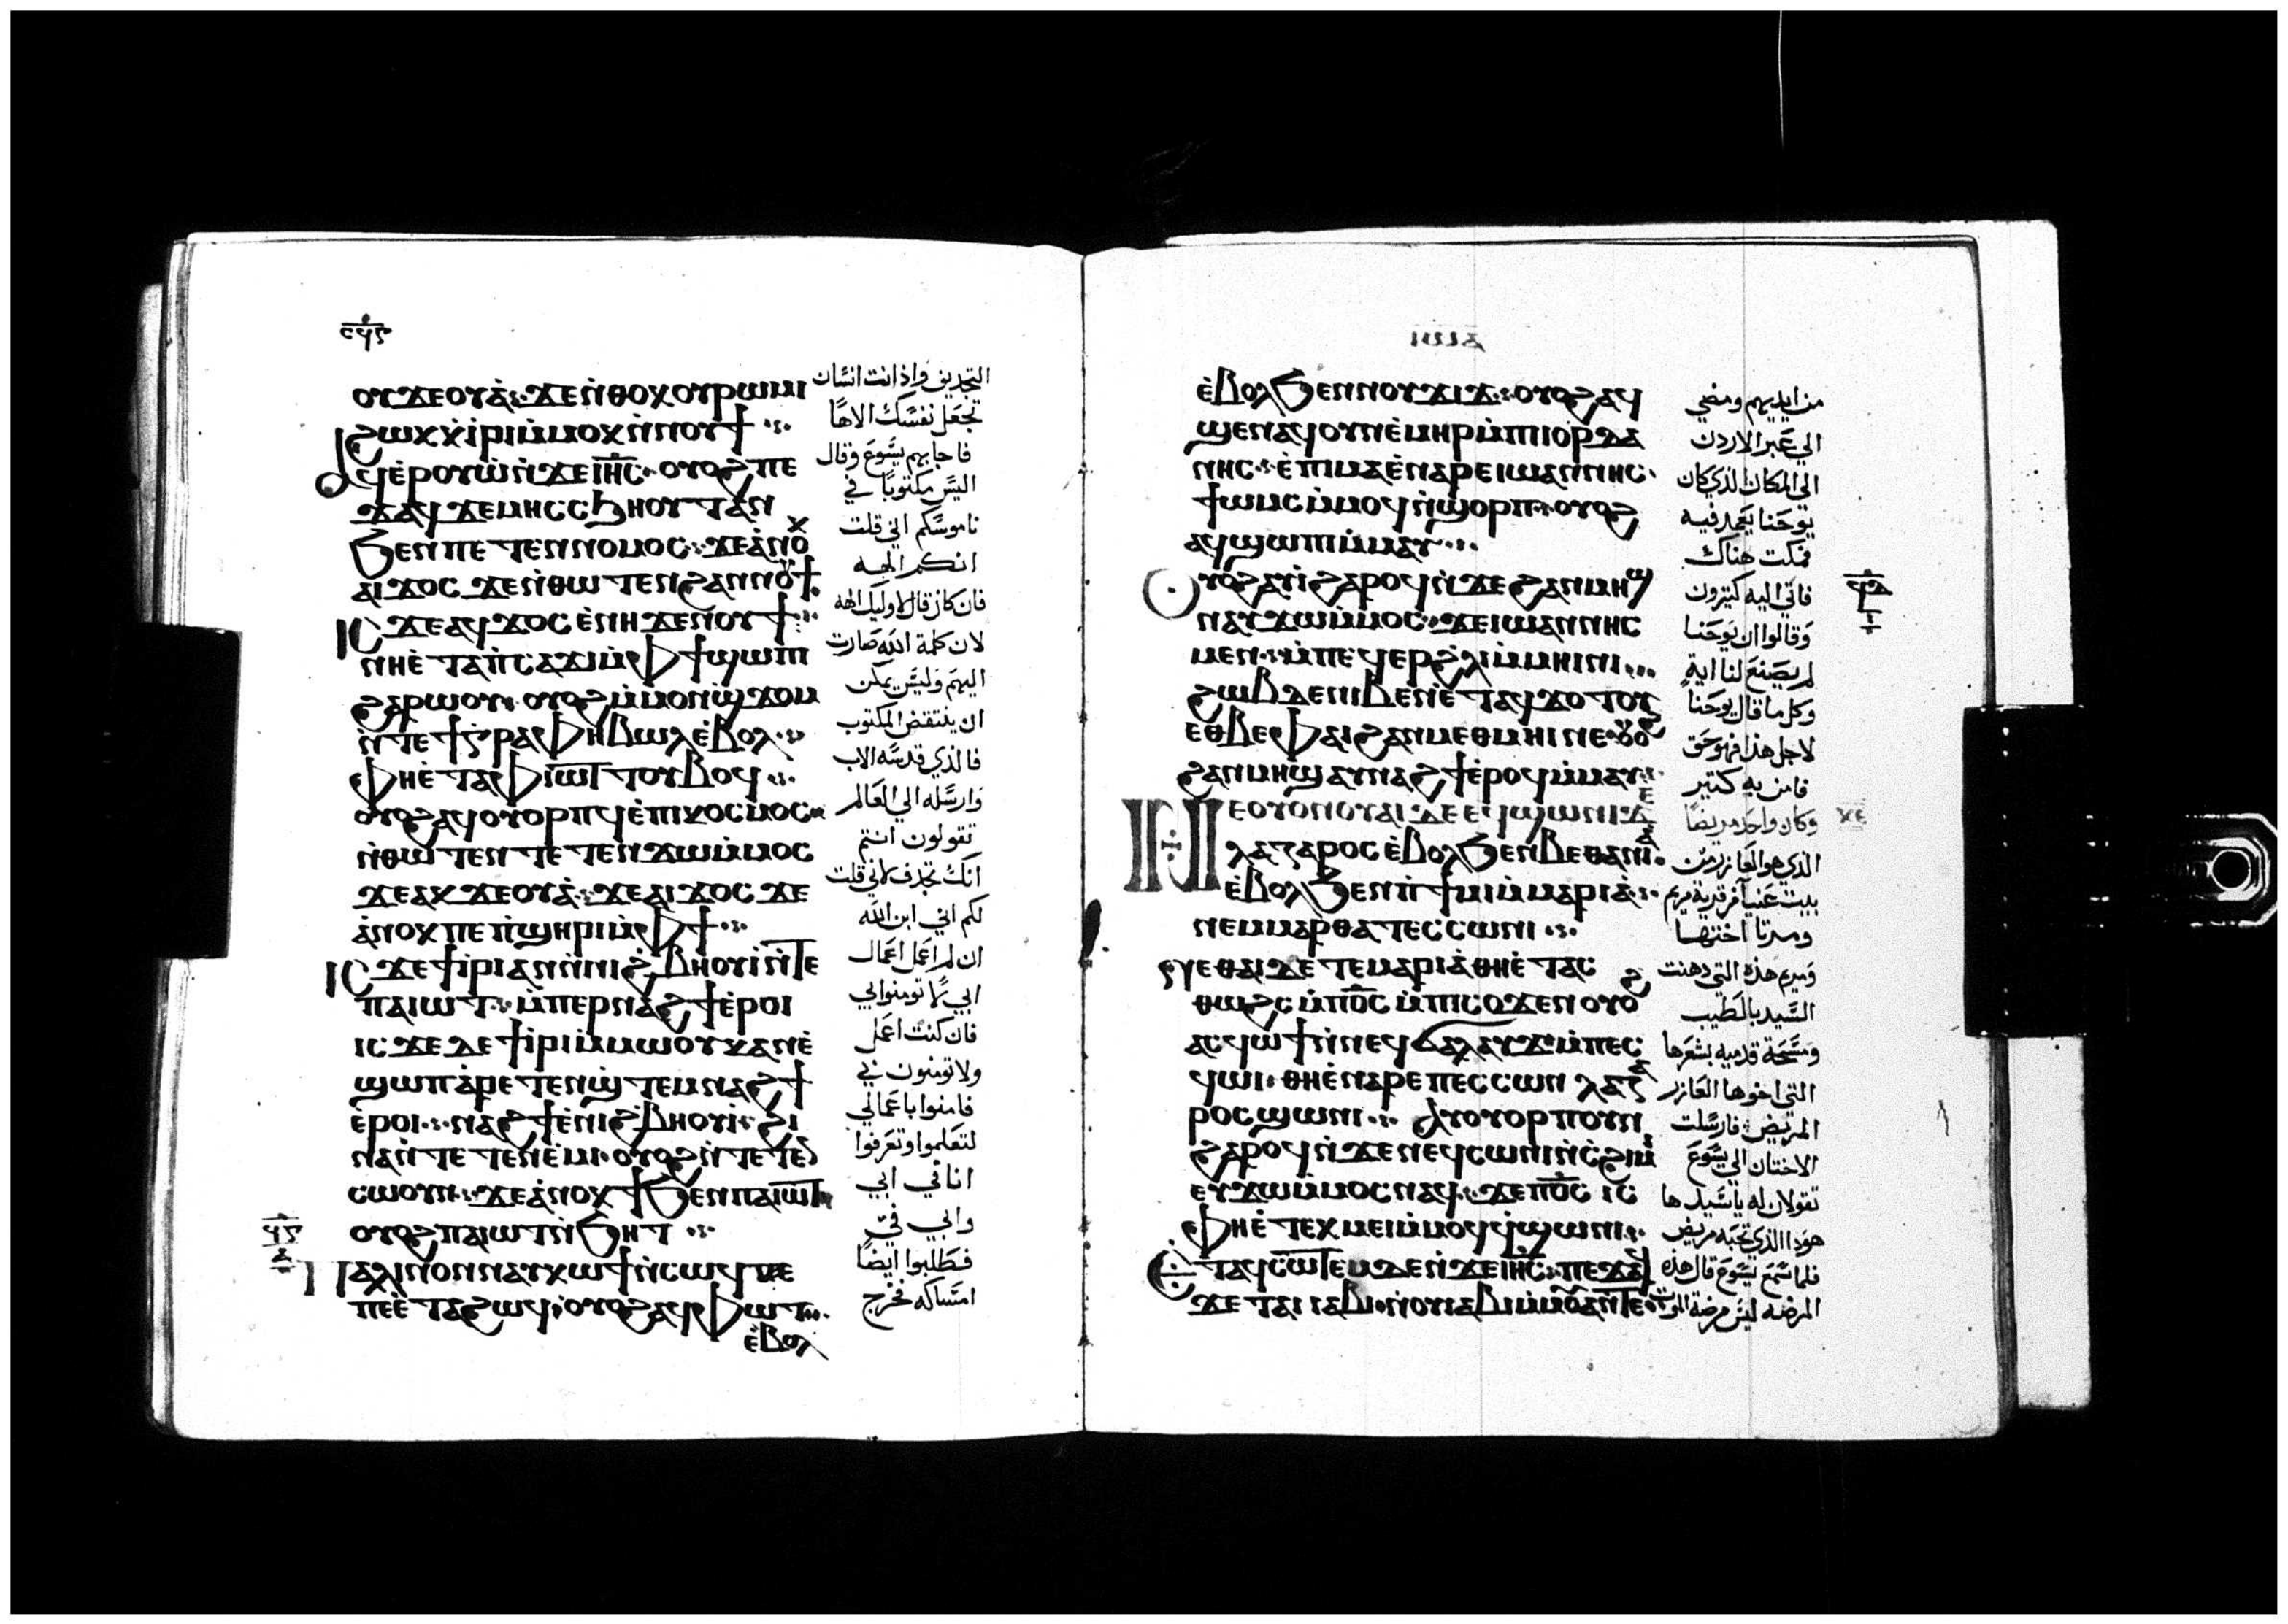 ⲟⲩϫⲉⲟⲩⲁ̀ ϫⲉ ⲛ̀ⲑⲟⲕ ⲟⲩⲣⲱⲙⲓ
ϩⲱⲕ ⲕ̀ⲓ̀ⲣⲓ ⲙ̀ⲙⲟⲕ ⲛ̀ⲛⲟⲩϯ
ⲁϥⲉ̀ⲣⲟⲩⲱ̀ ⲛ̀ϫⲉ ⲓⲏ̅ⲥ̅ ⲟⲩⲟϩ ⲡⲉ
ϫⲁϥ ϫⲉ ⲙⲏ ⲥⲥϧⲏⲟⲩⲧ ⲁⲛ
ϧⲉⲛ ⲡⲉⲧⲉⲛⲛⲟⲙⲟⲥ ϫⲉ ⲁ̀ⲛⲟⲕ
ⲁⲓϫⲟⲥ ϫⲉ ⲛ̀ⲑⲱⲧⲉⲛ ϩⲁⲛⲛⲟⲩϯ
ⲓⲥϫⲉ ⲁϥϫⲟⲥ ⲉ̀ⲛⲏ ϫⲉ ⲛⲟⲩϯ
ⲛⲏ ⲉ̀ⲧⲁ ⲡ̀ⲥⲁϫⲓ ⲙ̀ⲫϯ ϣⲱⲡⲓ
ϩⲁⲣⲱⲟⲩ ⲟⲩⲟϩ ⲙ̀ⲙⲟⲛ ⲛ̀ϣϫⲟⲙ
ⲛ̀ⲧⲉ ϯⲅ̀ⲣⲁⲫⲏ ⲃⲱⲗ ⲉ̀ⲃⲟⲗ
ⲫⲏ ⲉ̀ⲧⲁ ⲫⲓⲱⲧ ⲧⲟⲩⲃⲟϥ
ⲟⲩⲟϩ ⲁϥⲟⲩⲟⲣⲡϥ ⲉ̀ⲡⲓⲕⲟⲥⲙⲟⲥ
ⲛ̀ⲑⲱⲧⲉⲛ ⲧⲉⲧⲉⲛϫⲱ ⲙ̀ⲙⲟⲥ
ϫⲉ ⲁⲕϫⲉⲟⲩⲁ̀ ϫⲉ ⲁⲓϫⲟⲥ ϫⲉ
ⲁ̀ⲛⲟⲕ ⲡⲉ ⲡ̀ϣⲏⲣⲓ ⲙ̀ⲫϯ
ⲓⲥϫⲉ ϯⲓ̀ⲣⲓ ⲁⲛ ⲛ̀ⲛⲓϩⲃⲏⲟⲩⲓ̀ ⲛ̀ⲧⲉ
ⲡⲁⲓⲱⲧ ⲙ̀ⲡⲉⲣⲛⲁϩϯ ⲉ̀ⲣⲟⲓ
ⲓⲥϫⲉ ⲇⲉ ϯⲓ̀ⲣⲓ ⲙ̀ⲙⲱⲟⲩ ⲕⲁⲛ ⲉ̀
ϣⲱⲡ ⲁ̀ⲣⲉⲧⲉⲛϣ̀ⲧⲉⲙⲛⲁϩϯ
ⲉ̀ⲣⲟⲓ ⲛⲁϩϯ ⲉ̀ⲛⲓϩ̀ⲃⲏⲟⲩⲓ̀ ϩⲓ
ⲛⲁ ⲛ̀ⲧⲉⲧⲉⲛⲉ̀ⲙⲓ ⲟⲩⲟϩ ⲛ̀ⲧⲉⲧⲉⲛ
ⲥⲱⲟⲩⲛ ϫⲉ ⲁ̀ⲛⲟⲕ ϯϧⲉⲛ ⲡⲁⲓⲱⲧ
ⲟⲩⲟϩ ⲡⲁⲓⲱⲧ ⲛ̀ϧⲏⲧ
ⲡⲁⲗⲓⲛ ⲟⲛ ⲛⲁⲩⲕⲱϯ ⲛ̀ⲥⲱϥ ⲡⲉ
ⲡⲉ ⲉ̀ⲧⲁϩⲱϥ ⲟⲩⲟϩ ⲁϥⲫⲱⲧ
ⲉ̀ⲃⲟⲗ
التجديف واذ انت انسان
تجعل نفسك الاها
فاجابهم يسوع وقال
اليس مكتوبا في
ناموسكم اني قلت
انكم الهه
فان كان قال لاوليك الهه
لان كلمة الله صارت
اليهم وليس يمكن
ان ينتقض المكتوب
فالذي قدسه الاب
وارسله الي العالم
تقولون انتم
انك تجدف لاني قلت
لكم اني ابن الله
ان لم اعمل اعمال
ابي لا تومنوا بي
فان كنت اعمل
ولا تومنون بي
فامنوا باعمالي
لتعلموا وتعرفوا
انا في ابي
وابي في
فطلبوا ايضا
امساكه فخرج
ⲉ̀ⲃⲟⲗϧⲉⲛ ⲛⲟⲩϫⲓϫ ⲟⲩⲟϩ ⲁϥ
ϣⲉⲛⲁϥ ⲟⲛ ⲉ̀ⲙⲏⲣ ⲙ̀ⲡⲓⲓⲟⲣⲇⲁ
ⲛⲏⲥ ⲉ̀ⲡⲓⲙⲁ ⲉ̀ⲛⲁⲣⲉ ⲓⲱⲁⲛⲛⲏⲥ
ϯⲱⲙⲥ ⲙ̀ⲙⲟϥ ⲛ̀ϣⲟⲣⲡ ⲟⲩⲟϩ
ⲁϥϣⲱⲡⲓ ⲙ̀ⲙⲁⲩ
ⲟⲩⲟϩ ⲁⲩⲓ̀ ϩⲁⲣⲟϥ ⲛ̀ϫⲉ ϩⲁⲛⲙⲏϣ
ⲛⲁⲩϫⲱ ⲙ̀ⲙⲟⲥ ϫⲉ ⲓⲱⲁⲛⲛⲏⲥ
ⲙⲉⲛ ⲙ̀ⲡⲉϥⲉⲣϩ̀ⲗⲓ ⲙ̀ⲙⲏⲓⲛⲓ
ϩⲱⲃ ⲇⲉ ⲛⲓⲃⲉⲛ ⲉ̀ⲧⲁϥϫⲟⲧⲟⲩ
ⲉⲑⲃⲉ ⲫⲁⲓ ϩⲁⲛⲙⲉⲑⲙⲏⲓ ⲛⲉ ⲟⲩⲟϩ
ϩⲁⲛⲙⲏϣ ⲁⲩⲛⲁϩϯ ⲉ̀ⲣⲟϥ ⲙ̀ⲙⲁⲩ
ⲛⲉ ⲟⲩⲟⲛ ⲟⲩⲁⲓ ⲇⲉ ⲉϥϣⲱⲛⲓ ϫⲉ
ⲗⲁⲍⲁⲣⲟⲥ ⲉ̀ⲃⲟⲗϧⲉⲛ ⲃⲉⲑⲁⲛⲓⲁ
ⲉ̀ⲃⲟⲗϧⲉⲛ ⲡ̀ϯⲙⲓ ⲙ̀ⲙⲁⲣⲓⲁ
ⲛⲉⲙ ⲙⲁⲣⲑⲁ ⲧⲉⲥⲥⲱⲛⲓ
ⲑⲁⲓ ⲇⲉ ⲧⲉ ⲙⲁⲣⲓⲁ̀ ⲑⲏ ⲉ̀ⲧⲁⲥ
ⲑⲱϩⲥ ⲙ̀ⲡⲟ̅ⲥ̅ ⲙ̀ⲡⲓⲥⲟϫⲉⲛ ⲟⲩⲟϩ
ⲁⲥϥⲱϯ ⲛ̀ⲛⲉϥϭⲁⲗⲁⲩϫ ⲙ̀ⲡⲉⲥ
ϥⲱⲓ ⲑⲏ ⲉ̀ⲛⲁⲣⲉ ⲡⲉⲥⲥⲟⲛ ⲗⲁⲍⲁ
ⲣⲟⲥ ϣⲱⲛⲓ ⲁⲩⲟⲩⲱⲣⲡ ⲟⲩⲛ
ϩⲁⲣⲟϥ ⲛ̀ϫⲉ ⲛⲉϥⲥⲱⲛⲓ ⲛ̀ⲥϩⲓⲙⲓ
ⲉⲩϫⲱ ⲙ̀ⲙⲟⲥ ⲛⲁϥ ϫⲉ ⲡⲟ̅ⲥ̅ ⲓⲥ
ⲫⲏ ⲉ̀ⲧⲉⲕⲙⲉⲓ ⲙ̀ⲙⲟϥ ϥ̀ϣⲱⲛⲓ
ⲉⲧⲁϥⲥⲱⲧⲉⲙ ⲇⲉ ⲛ̀ϫⲉ ⲓⲏ̅ⲥ̅ ⲡⲉϫⲁϥ
ϫⲉ ⲧⲁⲓⲓⲁⲃⲓ ⲛⲟⲩⲓⲁⲃⲓ ⲙ̀ⲙⲟⲩ ⲁⲛ ⲧⲉ
من ايديهم ومضي
الي عبر الاردن
الي المكان الذي كان
يوحنا يعمد فيه
فمكث هناك
فاتي اليه كثيرون
وقالوا ان يوحنا
لم يصنع لنا اية
وكل ما قال يوحنا
لاجل هذا فهو حق
فامن به كثير
وكان واحد مريضا
الذي هو العازر من
بيت عنيا من قرية مريم
ومرتا اختها
ومريم هذه التي دهنت
السيد بالطيب
ومسحت قدميه بشعرها
التي اخوها العازر
المريض فارسلت
الاختان الي يسوع
تقولان له يا سيد ها
هوذا الذي تحبه مريض
فلما سمع يسوع قال هذه
المرضه ليس مرضة الموت